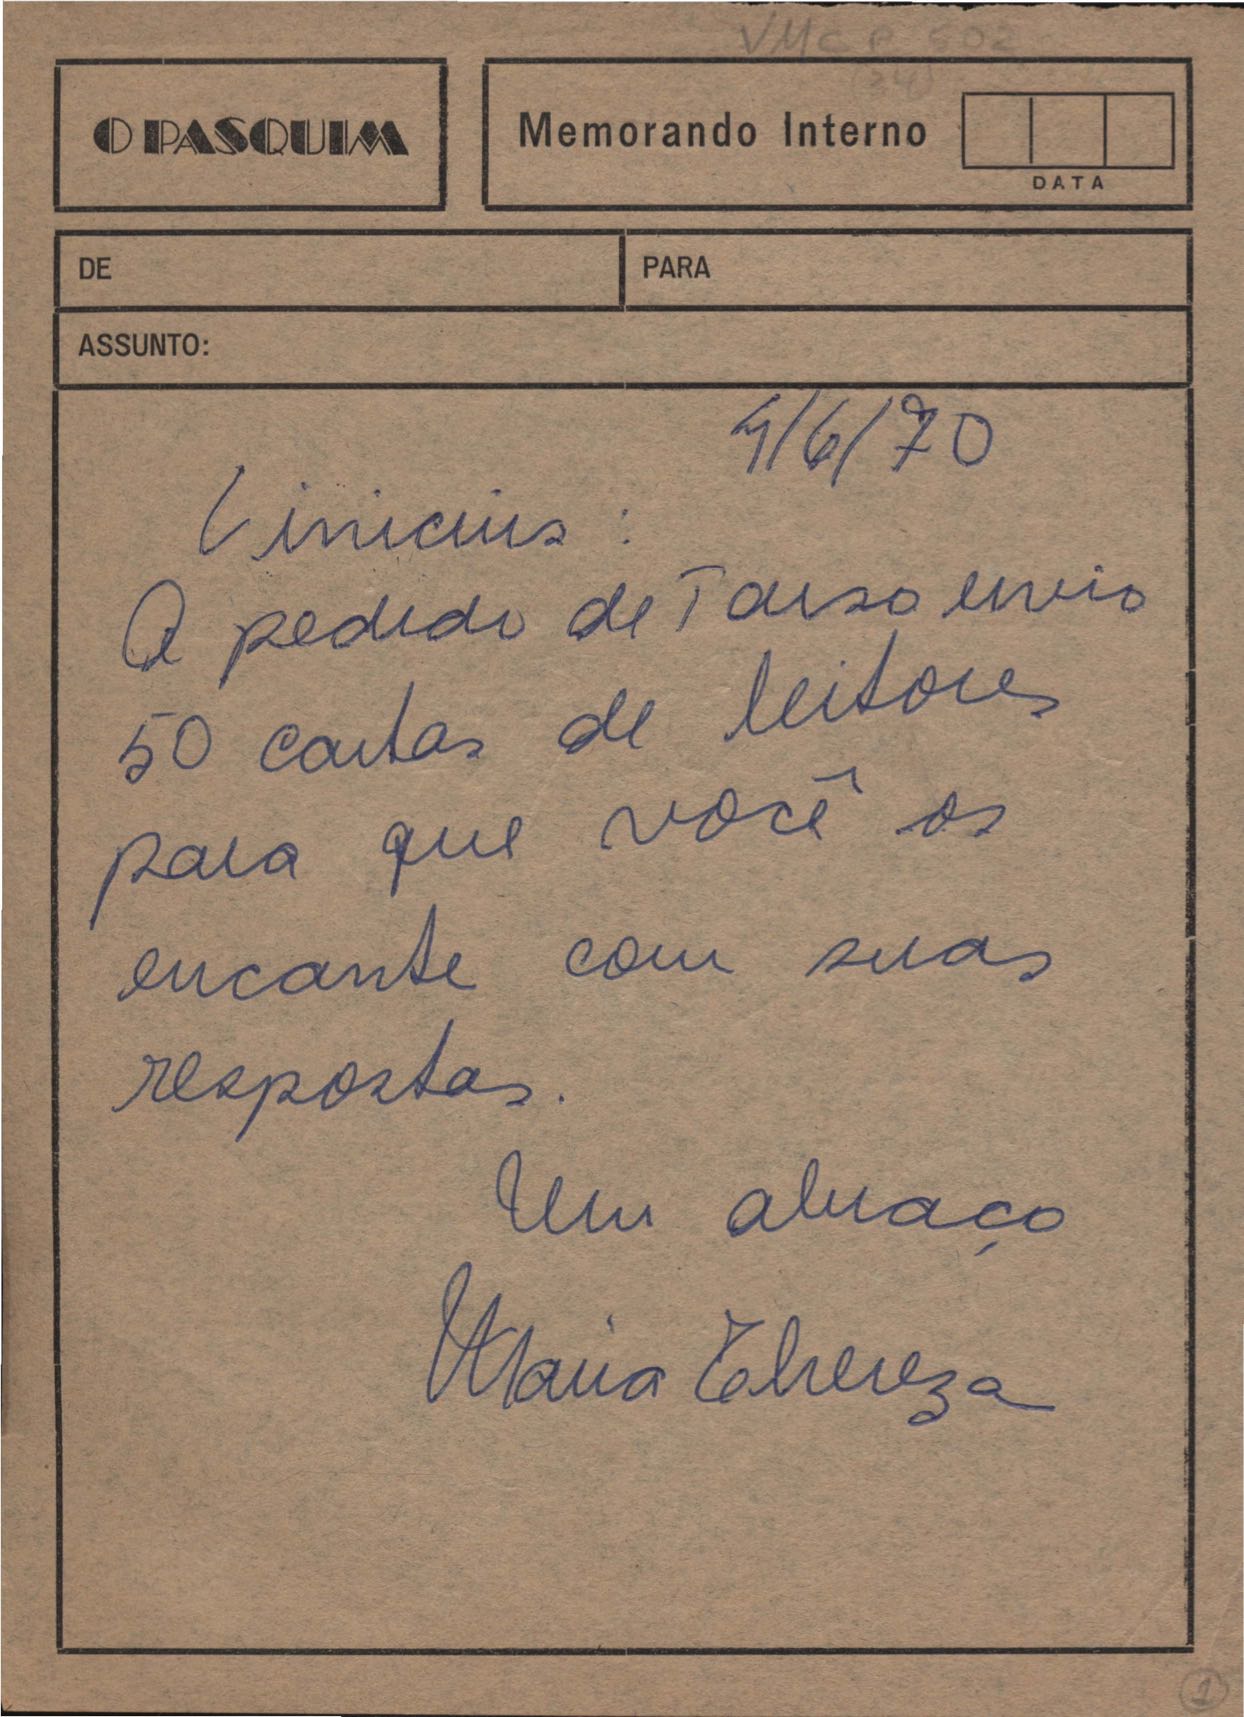 VMCP 502
(34)
O PASQUIM
Memorando Interno
DATA
DE
PARA
ASSUNTO:
4/6/70
Vinicius:
A pedido de Tarso envio
50 cartas de leitores
para que você os
encante com suas
respostas.
Um abraço
Maria Thereza
1